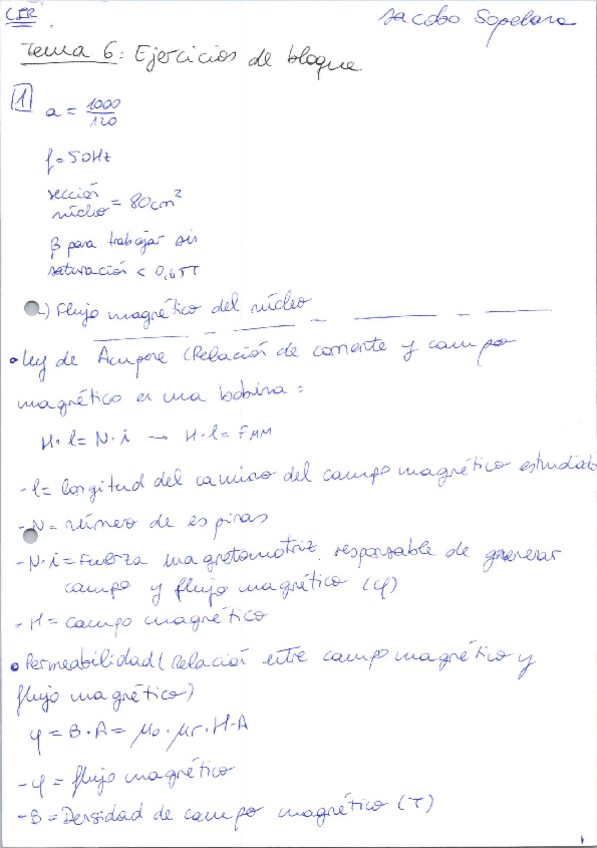 CIR
Jacobo Sopelana
Tema 6: Ejercicios de bloque
1
a = 1000/120
f = 50Hz
sección
núcleo = 80cm²
β para trabajar sin
saturación < 0,65T
) Flujo magnético del núcleo
• Ley de Ampere (Relación de corriente y campo
magnético en una bobina:
H·l = N·i → H·l = FMM
- l = longitud del camino del campo magnético estudiado
- N = número de espiras
- N·i = Fuerza magnetomotriz, responsable de generar
campo y flujo magnético (φ)
- H = campo magnético
• Permeabilidad (relación entre campo magnético y
flujo magnético)
φ = B·A = μo·μr·H·A
- φ = flujo magnético
- B = Densidad de campo magnético (T)